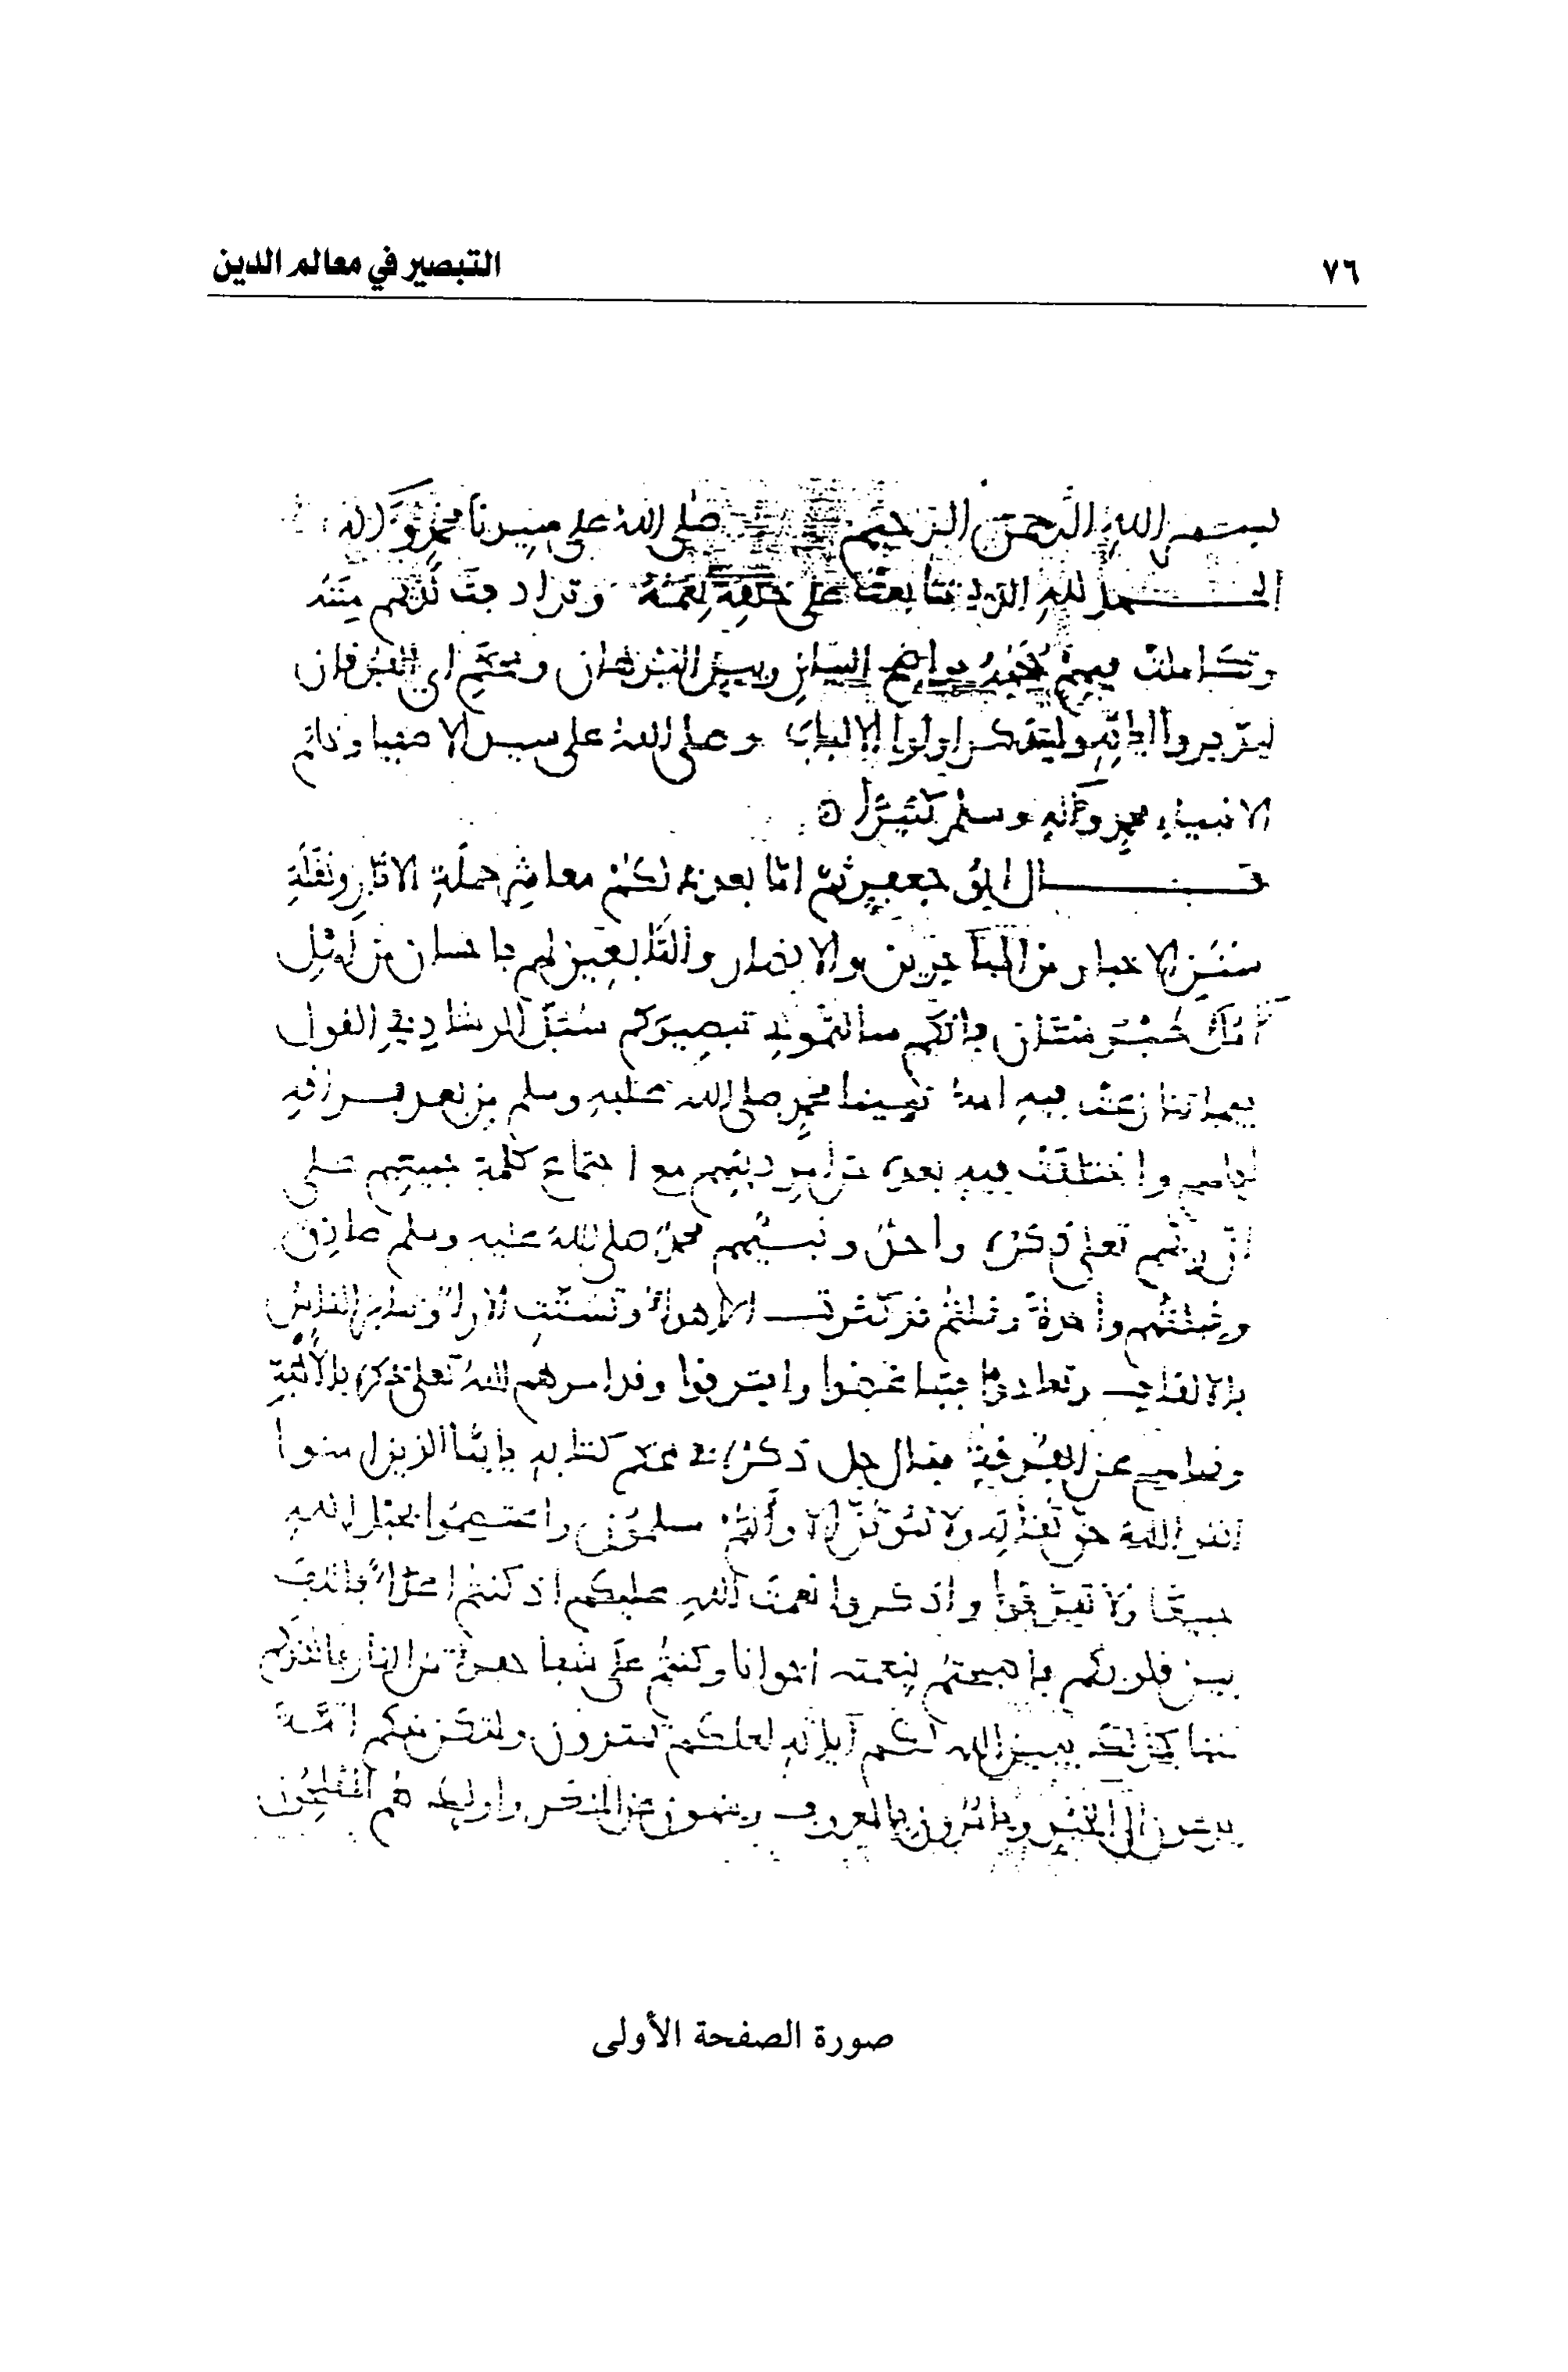 ٧٦
التبصير في معالم الدين
بسم الله الرحمن الرحيم صلى الله على سيدنا محمد وآله
الحمد لله الذي تتابعت على خلقه نعمه وترادفت لديهم مننه
وتكاملت فيهم حججه بواضح البيان وبين البرهان ومحكم آي الفرقان
ليدبروا آياته وليتذكر أولوا الالباب وصلى الله على سيد الاصفيا وخاتم
الانبياء محمد وآله وسلم كثيرا
قال ابو جعفر ثم اما بعد لكم معاشر حملة الاثار ونقلة
سنن الاخبار من المهاجرين والانصار والتابعين لهم باحسان من اهل
فانكم سالتموني تبصيركم سبل الرشاد في القول
فيما تنازعت فيه امة نبينا محمد صلى الله عليه وسلم من بعد فراقه
اياهم واختلفت فيه بعده من امر دينهم مع اجتماع كلمة جميعهم على
ان ربهم تعلى ذكره واحد ونبيهم محمد صلى الله عليه وسلم صادق
وقبلتهم واحدة وقلتم قد كثرت الاهواء وتشتت الاراء وتنابز الناس
بالالقاب وتعادوا فتباغضوا وافترقوا وقد امرهم الله تعلى ذكره بالالفة
ونهاهم عن الفرقة فقال جل ذكره في محكم كتابه يايها الذين امنوا
اتقوا الله حق تقاته ولا تموتن الا وأنتم مسلمون واعتصموا بحبل الله
جميعا ولا تفرقوا واذكروا نعمت الله عليكم اذ كنتم اعداء فالف
بين قلوبكم فاصبحتم بنعمته اخوانا وكنتم على شفا حفرة من النار فانقذكم
منها كذلك يبين الله لكم آياته لعلكم تهتدون ولتكن منكم امة
يدعون الى الخير ويامرون بالمعروف وينهون عن المنكر واوليك هم المفلحون
صورة الصفحة الأولى